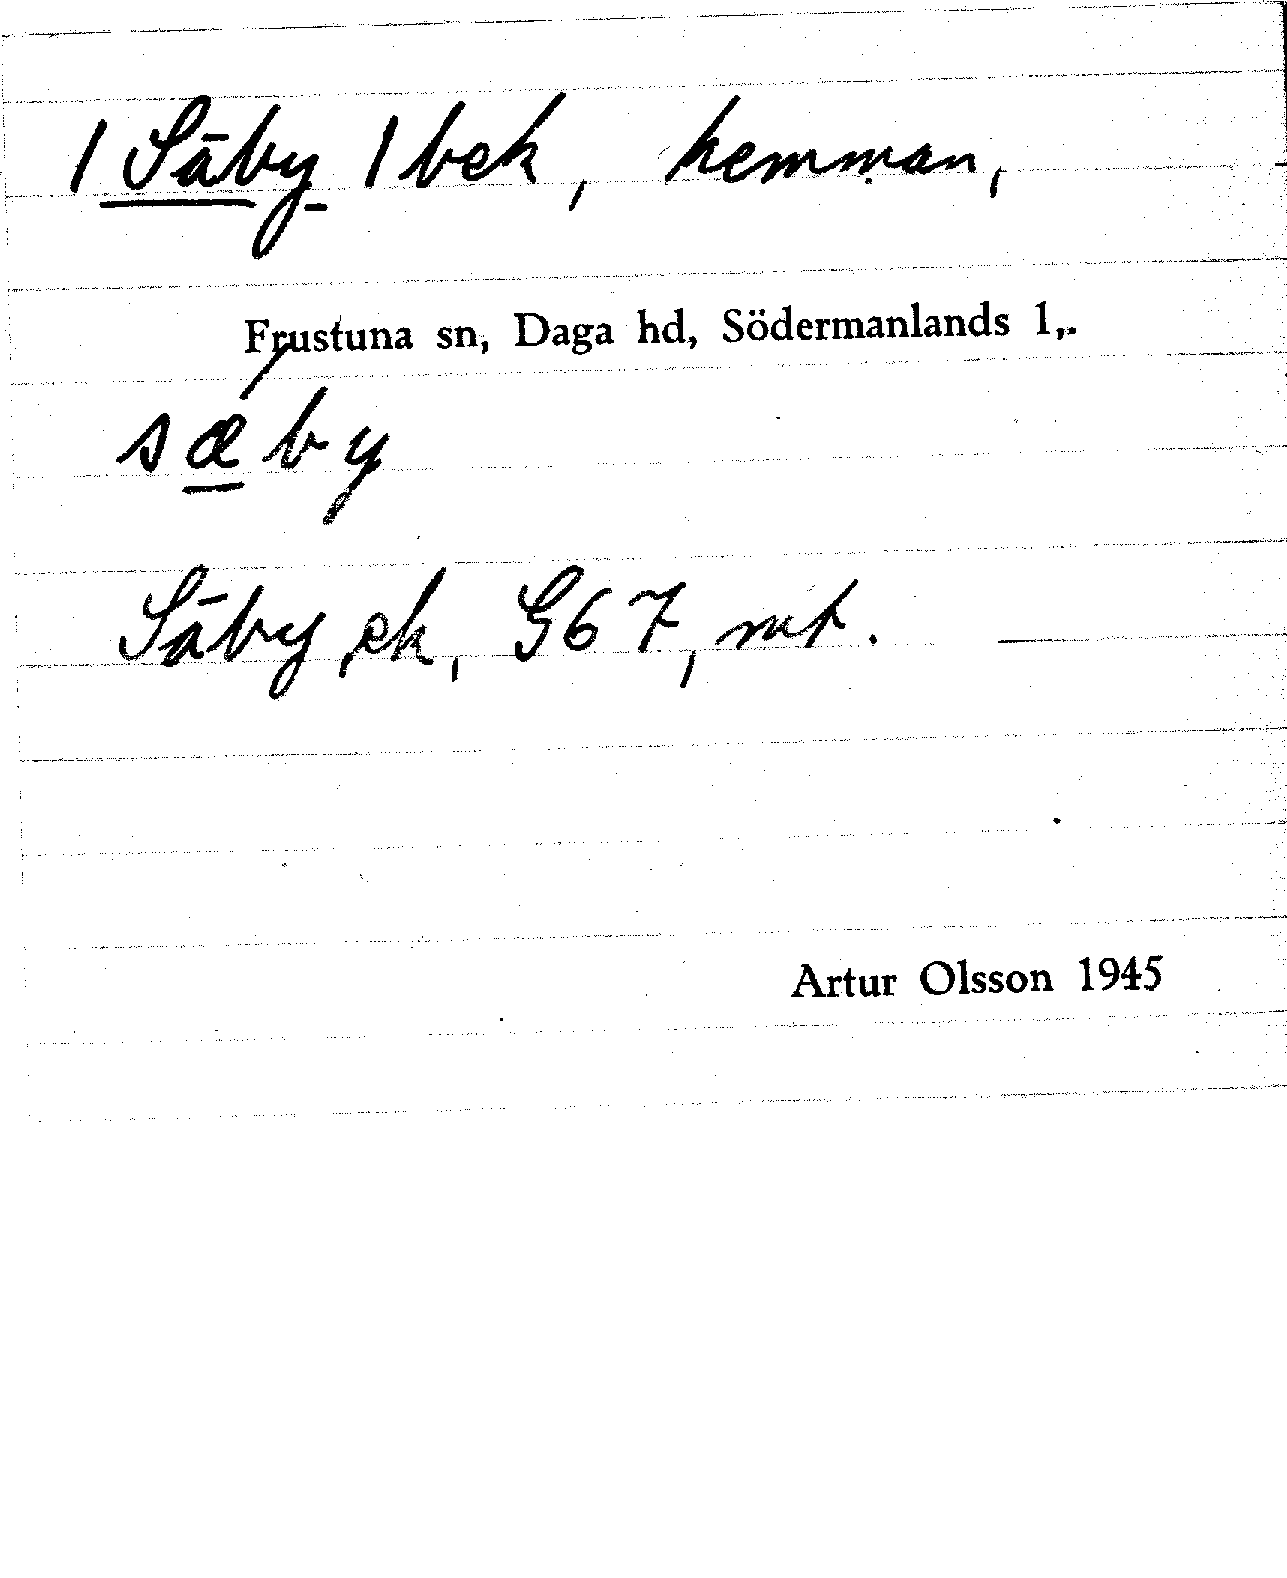 / Säby / bek, hemman,
Frustuna sn, Daga hd, Södermanlands l,.
sæ´by
Säby, ek, G67, mt.
Artur Olsson 1945